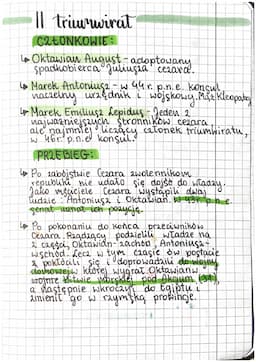 II triumwirat
CZŁONKOWIE:
↳ Oktawian August - adoptowany
spadkobierca Juliusza cezara.
↳ Marek Antoniusz - w 44 r. p.n.e. konsul,
naczelny urzędnik i wojskowy. Mąż Kleopatry
↳ Marek Emiliusz Lepidus - Jeden z
najważniejszych stronników cezara,
ale najmniej liczący członek triumwiratu,
w 46 r. p.n.e konsul.
PRZEBIEG:
↳ Po zabójstwie Cezara zwolennikom
republiki nie udało się dojść do władzy.
Jako mściciele Cezara wystąpili dwaj
ludzie: Antoniusz i Oktawian. w 43 r. p.n.e
senat uznał ich pozycję.
↳ Po pokonaniu do końca przeciwników
Cezara. Rządzący podzielili władzę na
2 części, Oktawian - zachód, Antoniusz -
wschód. Lecz w tym czasie obie postacie
się pokłócili się i doprowadzili do wojny
domowej, w której wygrał Oktawian w
wojnie bitwie morskiej pod Akcjum (31),
a następnie wkroczył do Egiptu i
zmienił go w rzymską prowincję.